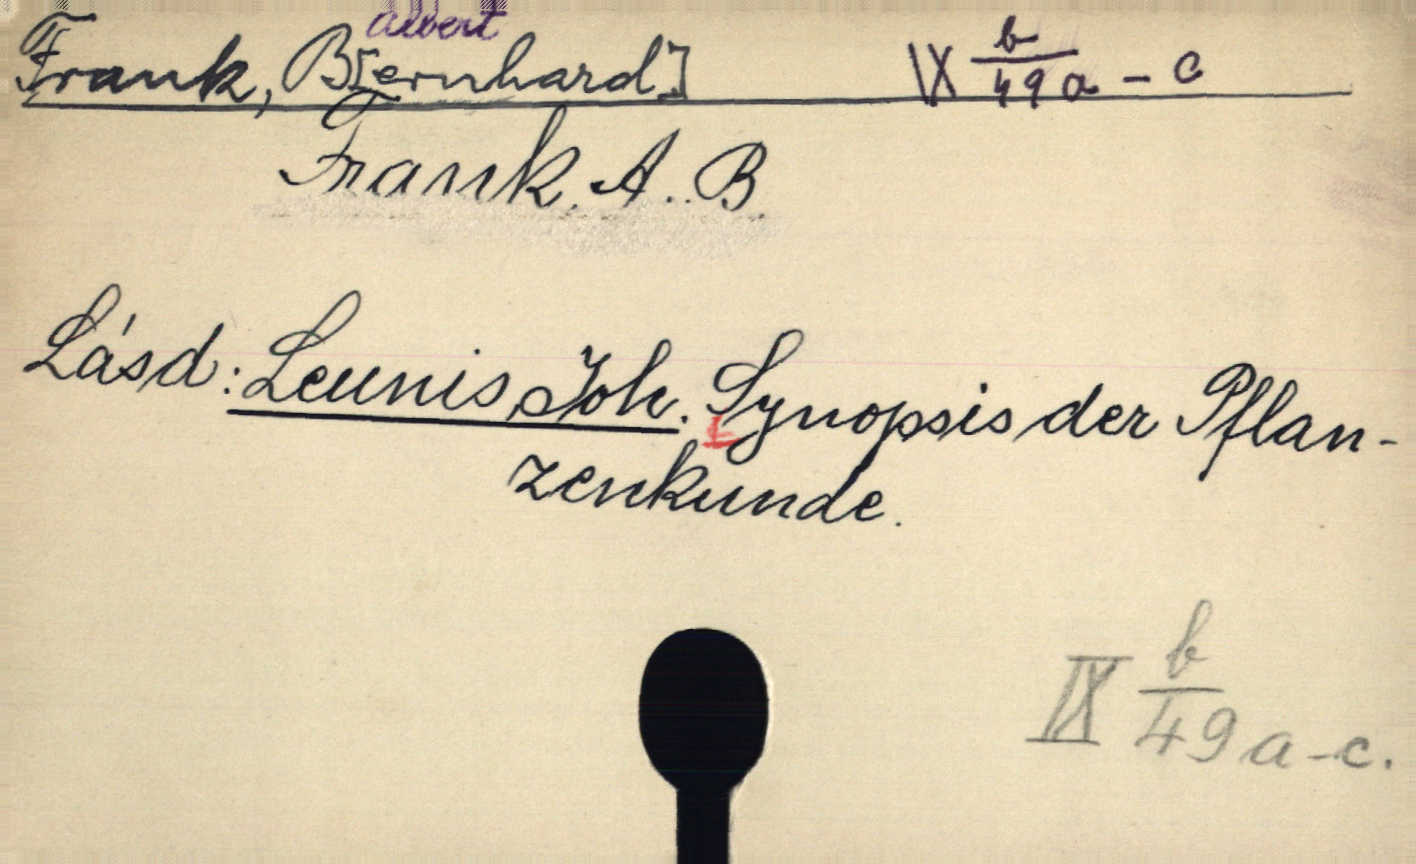 albert
Frank, B[ernhard] IX b/49a - c
Frank, A. B.
Lásd: Leunis, Joh. Synopsis der Pflan-
zenkunde.
IX b/49 a-c.